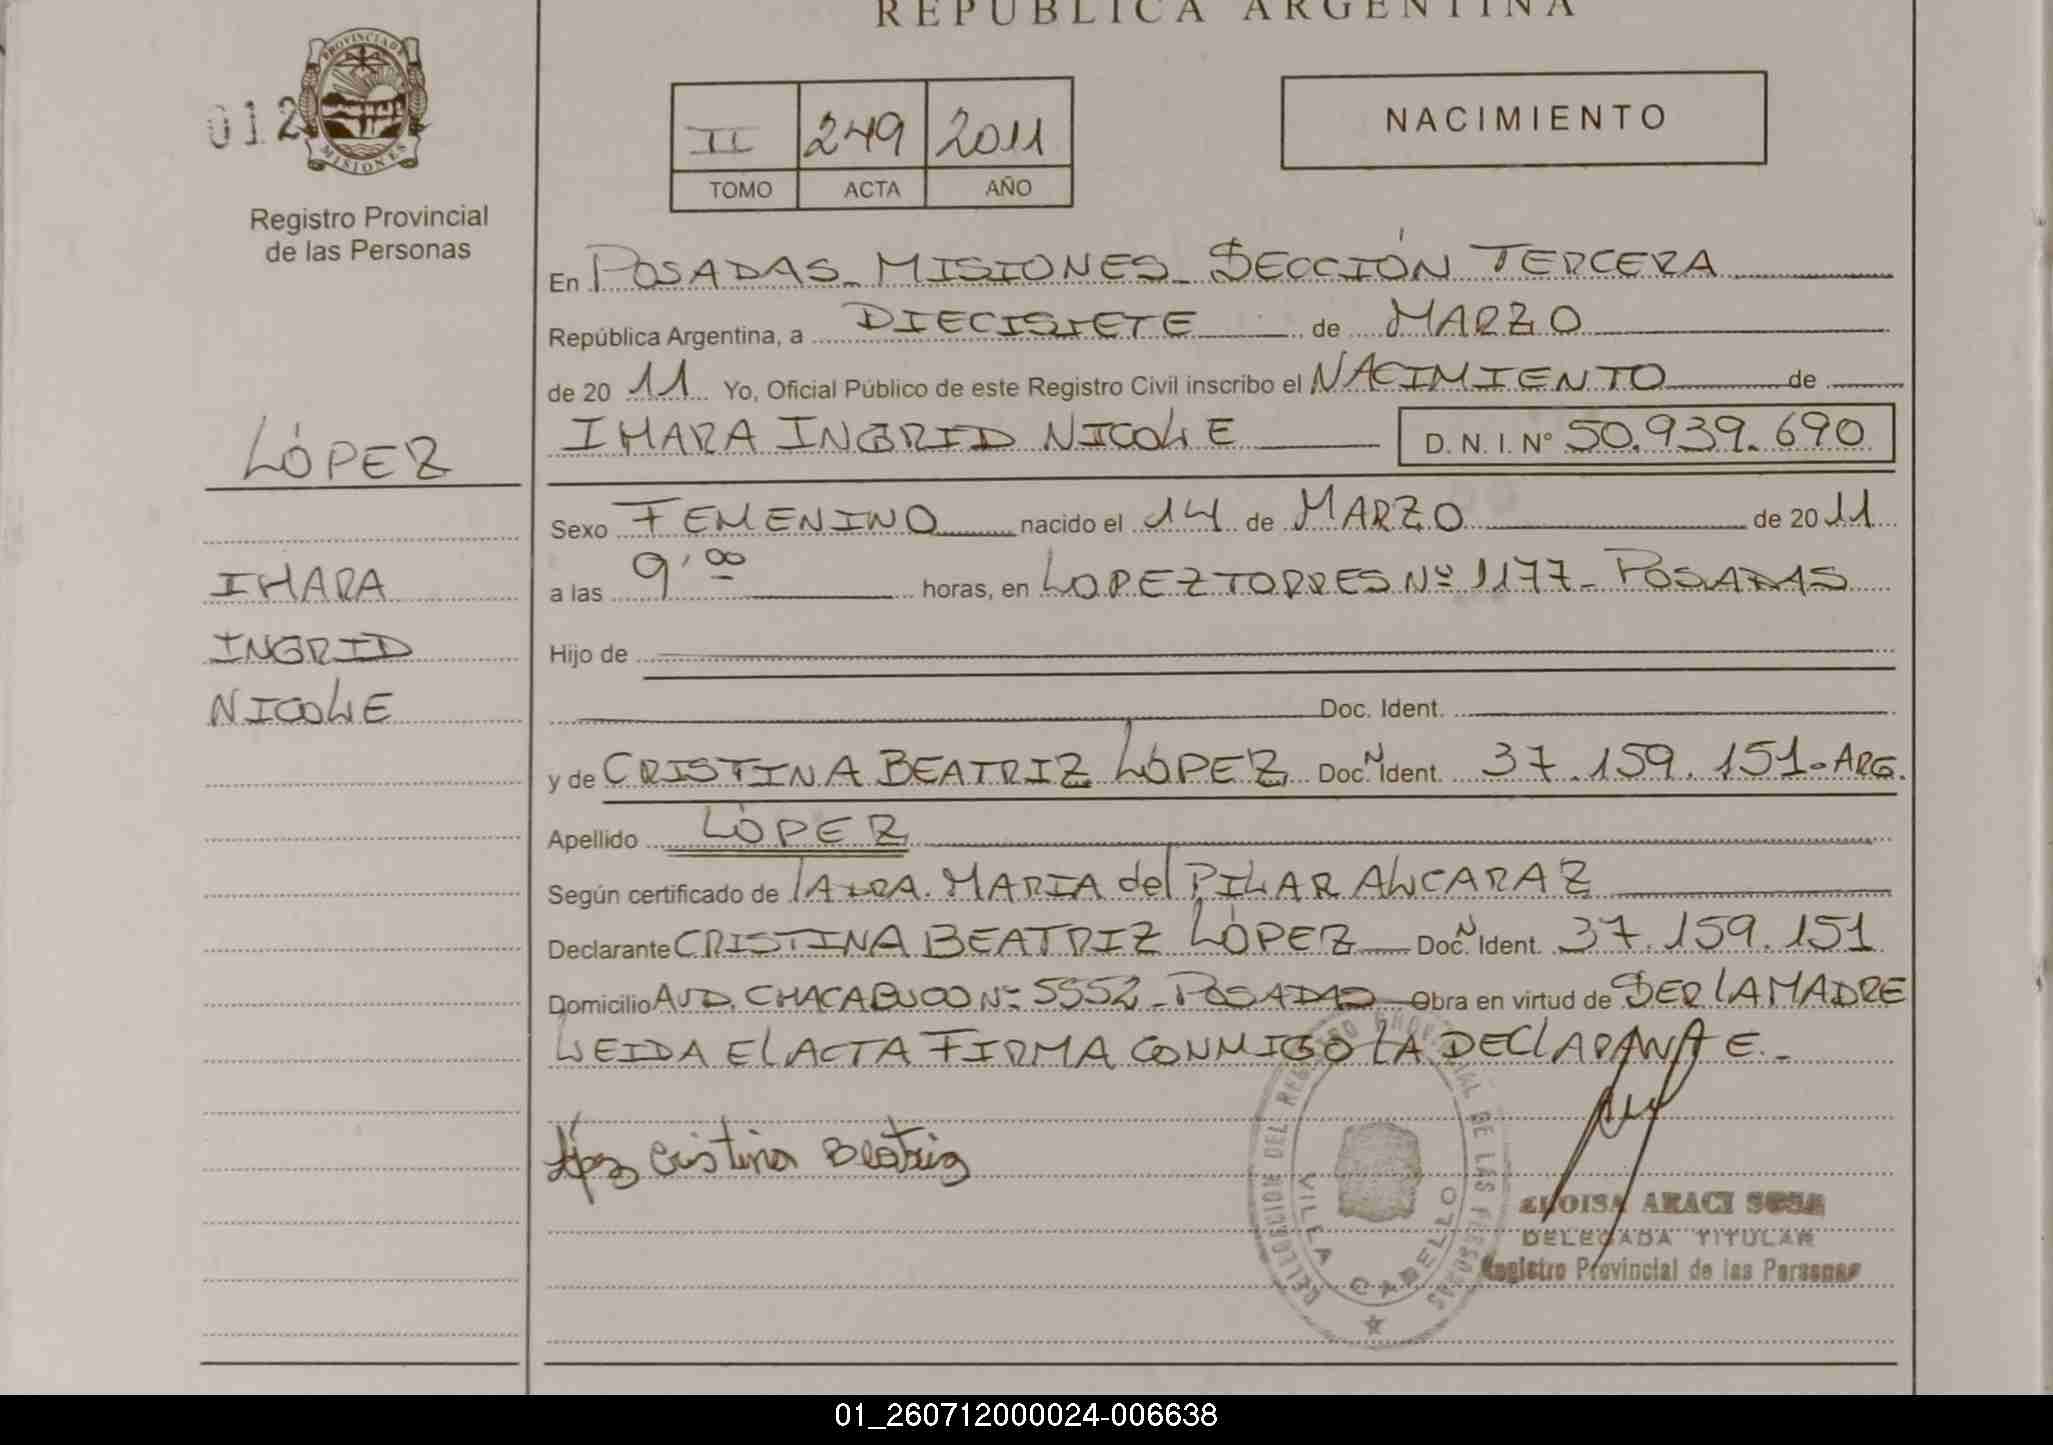 REPUBLICA ARGENTINA
PROVINCIA DE
MISIONES
012
Registro Provincial
de las Personas
II 249 2011
TOMO ACTA AÑO
NACIMIENTO
En POSADAS - MISIONES - SECCIÓN TERCERA
República Argentina, a DIECISIETE de MARZO
de 20 11 Yo, Oficial Público de este Registro Civil inscribo el NACIMIENTO de
IHARA INGRID NICOLE D. N. I. Nº 50.939.690
LÓPEZ
IHARA
INGRID
NICOLE
Sexo FEMENINO nacido el 14 de MARZO de 20 11
a las 9'00 horas, en LOPEZ TORRES Nº 1177 - POSADAS
Hijo de
Doc. Ident.
y de CRISTINA BEATRIZ LÓPEZ Doc. N Ident. 37.159.151 - ARG.
Apellido LÓPEZ
Según certificado de la DRA. MARIA del PILAR ALCARAZ
Declarante CRISTINA BEATRIZ LÓPEZ Doc. N Ident. 37.159.151
Domicilio AVD. CHACABUCO Nº 5552 - POSADAS Obra en virtud de SER LA MADRE
LEIDA El ACTA FIRMA CONMIGO LA DECLARANTE.-
López Cristina Beatriz
DELEGACION DEL REGISTRO PROVINCIAL DE LAS PERSONAS
VILLA CABELLO
ELOISA ARACI SOSA
DELEGADA TITULAR
Registro Provincial de las Personas
01_260712000024-006638